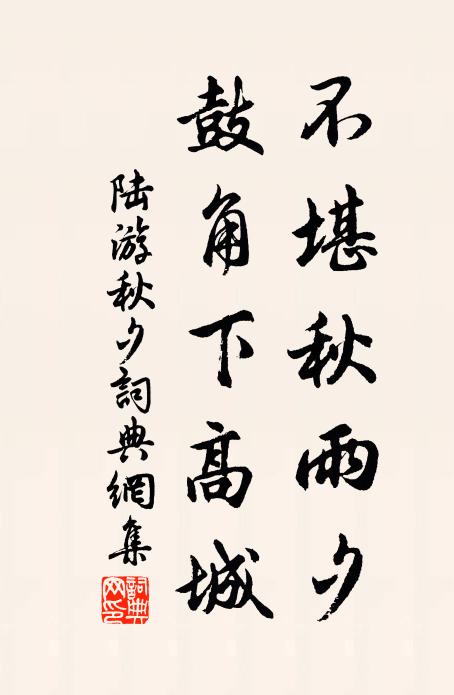 不堪秋雨夕
鼓角下高城
陆游秋夕詞典網集
詞典
网印